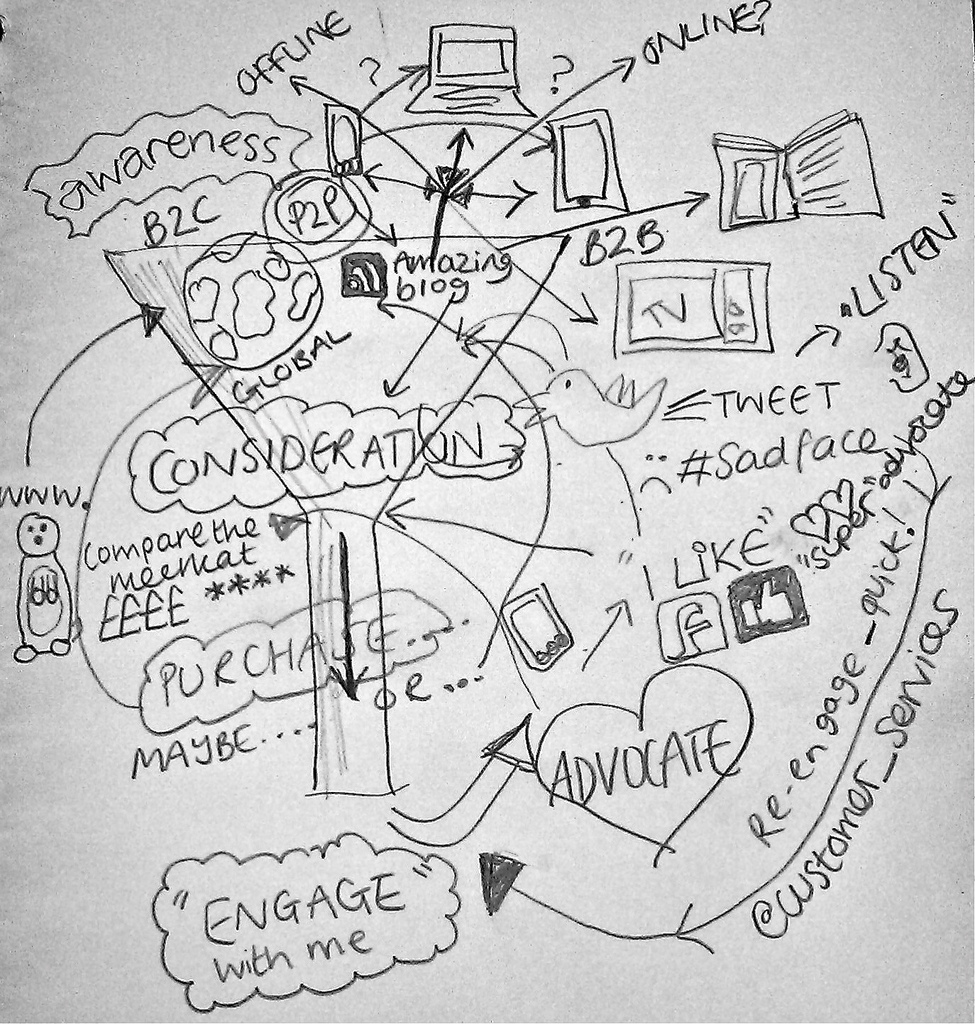 OFFLINE
?
?
ONLINE?
awareness
B2C
P2P
B2B
Amazing
blog
TV
GLOBAL
"LISTEN"
TWEET
#Sadface
CONSIDERATION
www.
Compare the
meerkat
££££ ****
"I LIKE"
f
"super" advocate
PURCHASE....
MAYBE.... OR...
ADVOCATE
Re-engage-quick!
@customer_services
"ENGAGE"
with me